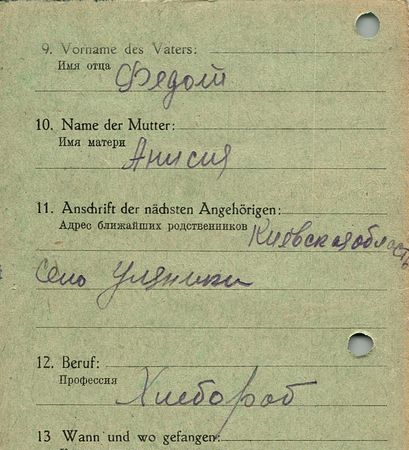 9. Vorname des Vaters:
Имя отца
Федот
10. Name der Mutter:
Имя матери
Анисия
11. Anschrift der nächsten Angehörigen:
Адрес ближайших родственников Киевская область
Село Уляники
12. Beruf:
Профессия
Хлебороб
13 Wann und wo gefangen: